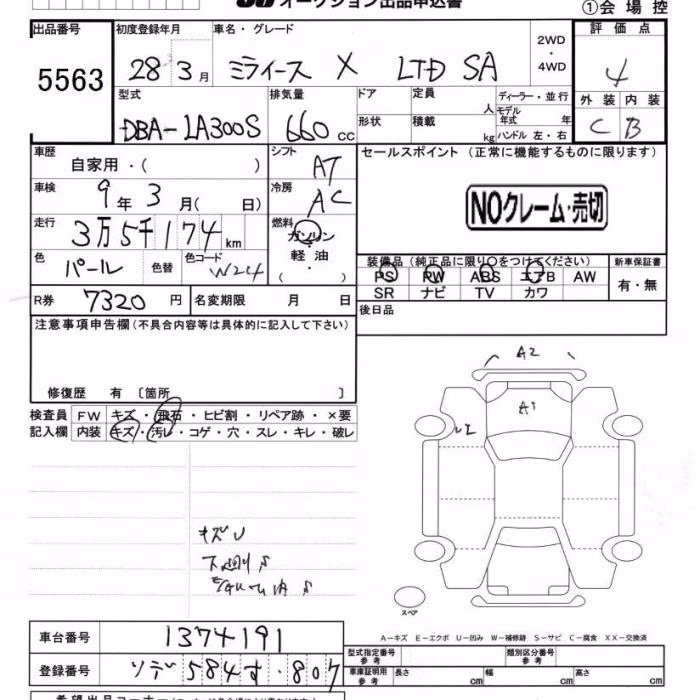 オークション出品申込書
①会場控
出品番号 5563
初度登録年月 28 3月
車名・グレード ミライース X LTD SA
2WD・4WD
評価点 4
外装 C 内装 B
型式 DBA-LA300S
排気量 660 cc
ドア
形状
定員 人
積載 kg
ディーラー・並行
モデル年式 年
ハンドル 左・右
車歴 自家用・( )
シフト AT
セールスポイント (正常に機能するものに限ります)
車検 9年 3月( 日)
冷房 AC
NOクレーム・売切
走行 3万5千174km
燃料 ガソリン・軽油・( )
色 パール 色替 色コード W24
装備品 (純正品に限り○をつけてください)
新車保証書 有・無
PS PW ABS エアB AW
SR ナビ TV カワ
R券 7320円
名変期限 月 日
後日品
注意事項申告欄 (不具合内容等は具体的に記入して下さい)
修復歴 有 〔箇所 〕
検査員記入欄
FW キズ・飛石・ヒビ割・リペア跡・×要
内装 キズ・汚レ・コゲ・穴・スレ・キレ・破レ
A2
A1
キズU
下廻りS
スペア
A-キズ E-エクボ U-凹み W-補修跡 S-サビ C-腐食 XX-交換済
車台番号 1374191
型式指定番号 参考
類別区分番号 参考
登録番号 ソデ584す・807
車庫証明用 参考 長さ cm 幅 cm 高さ cm